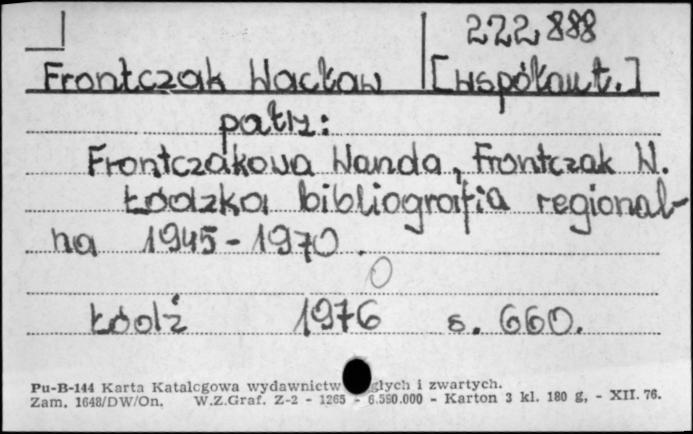 222,888
Frontczak Wacław [współaut.]
patrz:
Frontczakowa Wanda, Frontczak W.
Łódzka bibliografia regional-
na 1945-1970.
Łódź 1976 s. 660.
Pu-B-144 Karta Katalogowa wydawnictw głych i zwartych.
Zam. 1648/DW/On. W.Z.Graf. Z-2 - 1265 - 6.580.000 - Karton 3 kl. 180 g, - XII. 76.